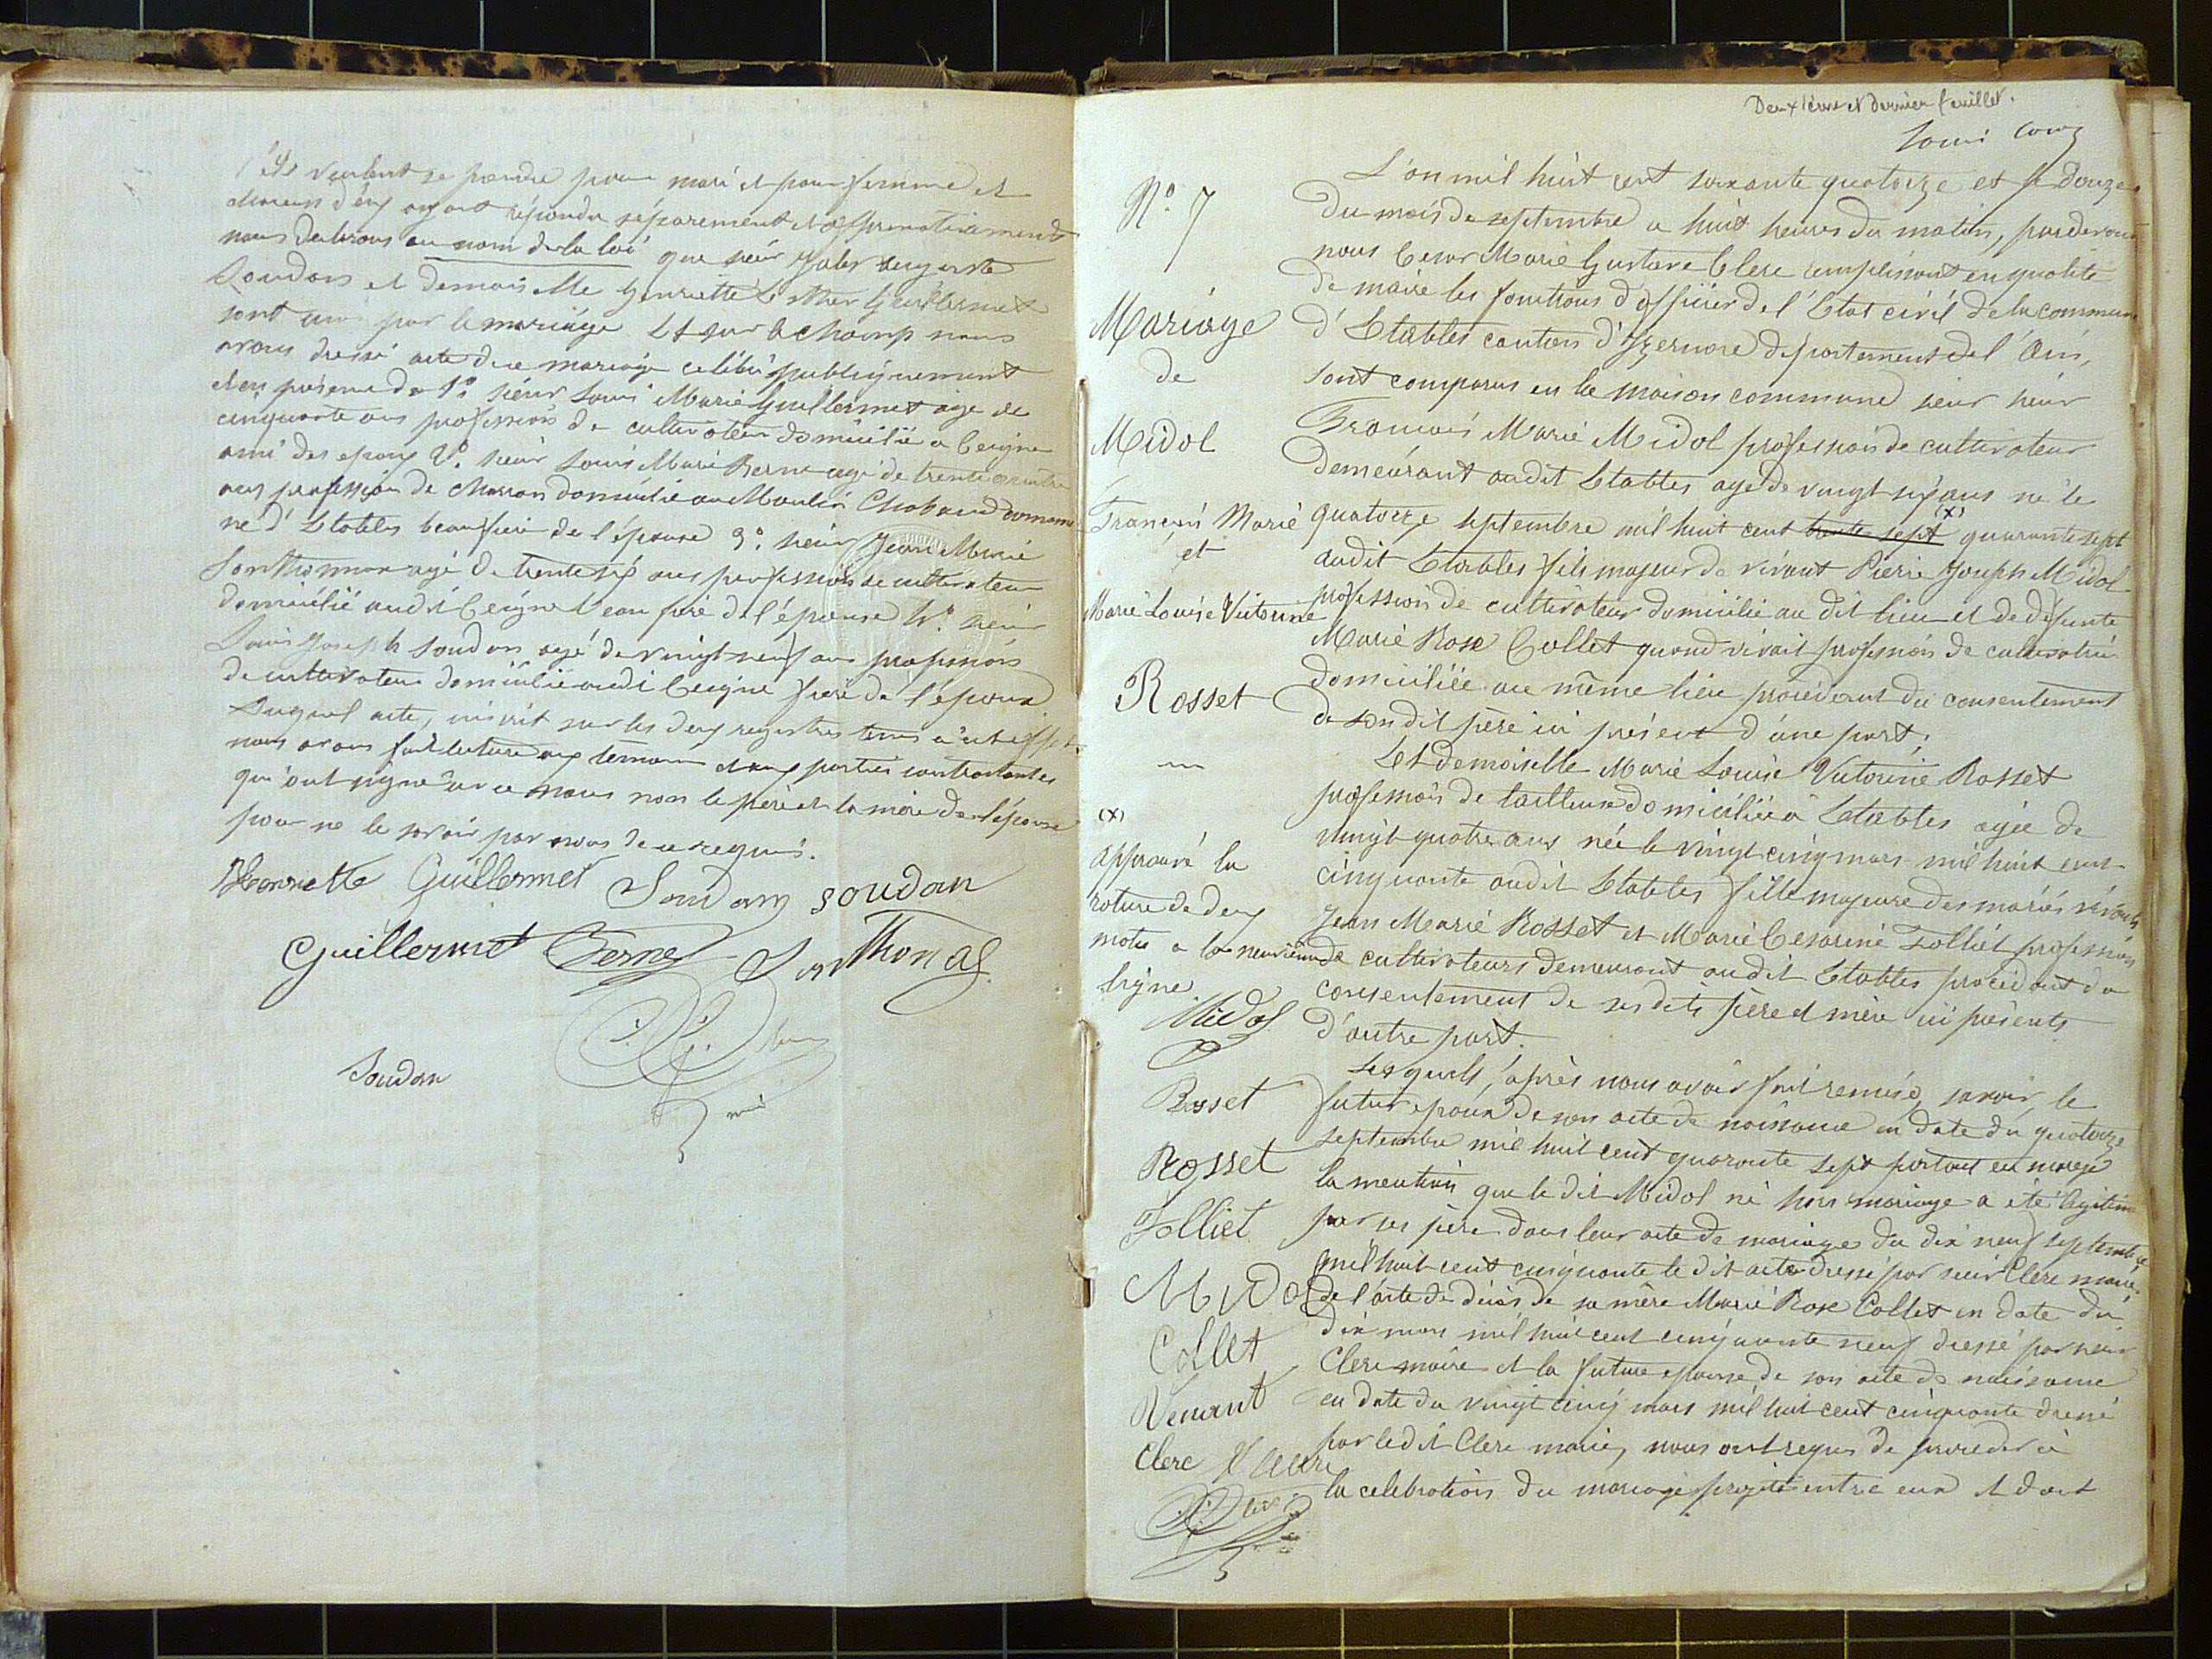 s'ils veulent se prendre pour mari et pour femme et
chacun d'eux ayant répondu séparement et affirmativement
nous declarons au nom de la loi que sieur Jules Auguste
Soudan et demoiselle Henriette Esther Guillermet
sont unis par le mariage Et sur le champ nous
avons dressé acte de ce mariage celebré publiquement
et en présence de 1º. sieur Louis Marie Guillermet agé de
cinquante ans profession de cultivateur domicilié a Ceigne
ami des epoux 2º. sieur Louis Marie Berne agé de trente quatre
ans profession de Charron domicilié au Moulin Chabaud
ne d'Etables beau frere de l'épouse 3º. sieur Jean Marie
Sonthonnax agé de trente six ans profession de cultivateur
domicilié audit Ceigne beau frere de l'épouse 4º. sieur
Louis Joseph Soudan agé de vingt neuf ans profession
de cultivateur domicilié audit Ceigne frere de l'époux
Duquel acte, inscrit sur les deux registres tenus à cet effet
nous avons fait lecture aux temoins et aux parties contractantes
qui ont signé avec nous non le père et la mère de l'épouse
pour ne le savoir par nous de ce requis.
Henriette Guillermet Soudan soudan
Guillermet Berne Sonthonax
Soudan
Deuxième et dernier feuillet.
Nº. 7
Mariage
de
Midol
François Marie
et
Marie Louise Victorine
Rosset
(x)
approuvé la
rature de deux
mots a la neuvième
ligne.
Midol
Rosset
Rosset
Folliet
Midol
Collet
Venant
Clerc
L'an mil huit cent soixante quatorze et le douze
du mois de septembre a huit heures du matin, pardevant
nous Cesar Marie Gustave Clerc remplissant en qualité
de maire les fonctions d'officier de l'Etat civil de la commune
d'Etables canton d'Izernore département de l'Ain,
sont comparus en la maison commune sieur sieur
François Marie Midol profession de cultivateur
demeurant audit Etables agé de vingt six ans né le
quatorze septembre mil huit cent trente sept (x) quarante sept
audit Etables fils majeur de vivant Pierre Joseph Midol
profession de cultivateur domicilié au dit lieu et de defunte
Marie Rose Collet quand vivait profession de cultivatrice
domiciliée au même lieu procédant du consentement
de son dit père ici présent d'une part;
Et demoiselle Marie Louise Victorine Rosset
profession de tailleuse domiciliée a Etables agée de
vingt quatre ans née le vingt cinq mars mil huit cent
cinquante audit Etables fille majeure des mariés vivants
Jean Marie Rosset et Marie Cesarine Folliet profession
de cultivateurs demeurant audit Etables procédant du
consentement de ses dits père et mère ici présents
d'autre part.
Lesquels, après nous avoir fait remise, savoir, le
futur époux de son acte de naissance en date du quatorze
septembre mil huit cent quarante sept portant en marge
la mention que le dit Midol né hors mariage a été legitimé
par ses père dans leur acte de mariage du dix neuf septembre
mil huit cent cinquante le dit acte dressé par sieur Clerc maire,
de l'acte de décès de sa mère Marie Rose Collet en date du
dix mars mil huit cent cinquante neuf dressé par sieur
Clerc maire et la future epouse de son acte de naissance
en date du vingt cinq mars mil huit cent cinquante dressé
par ledit Clerc maire, nous ont requis de proceder à
la celebration du mariage projeté entre eux et dont